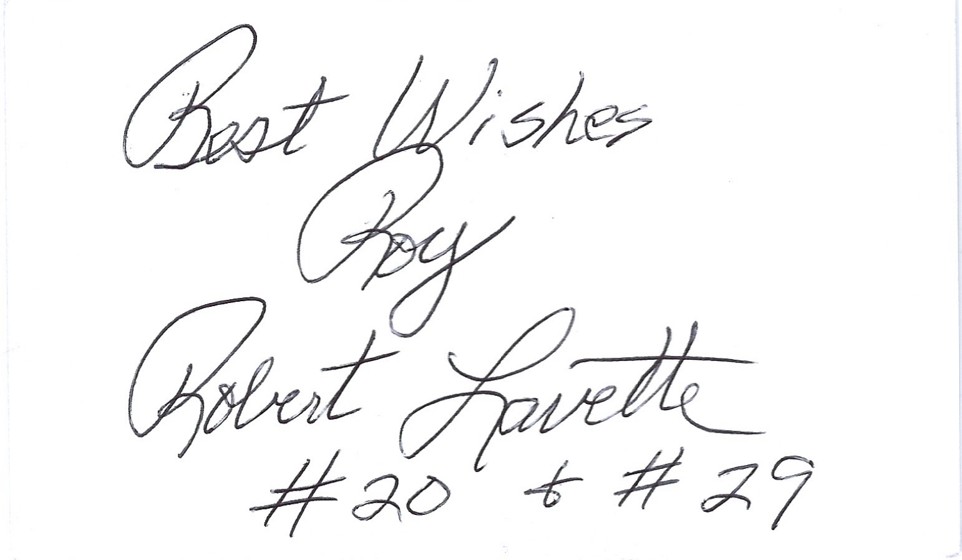 Best Wishes
Roy
Robert Lavette
#20 & #29